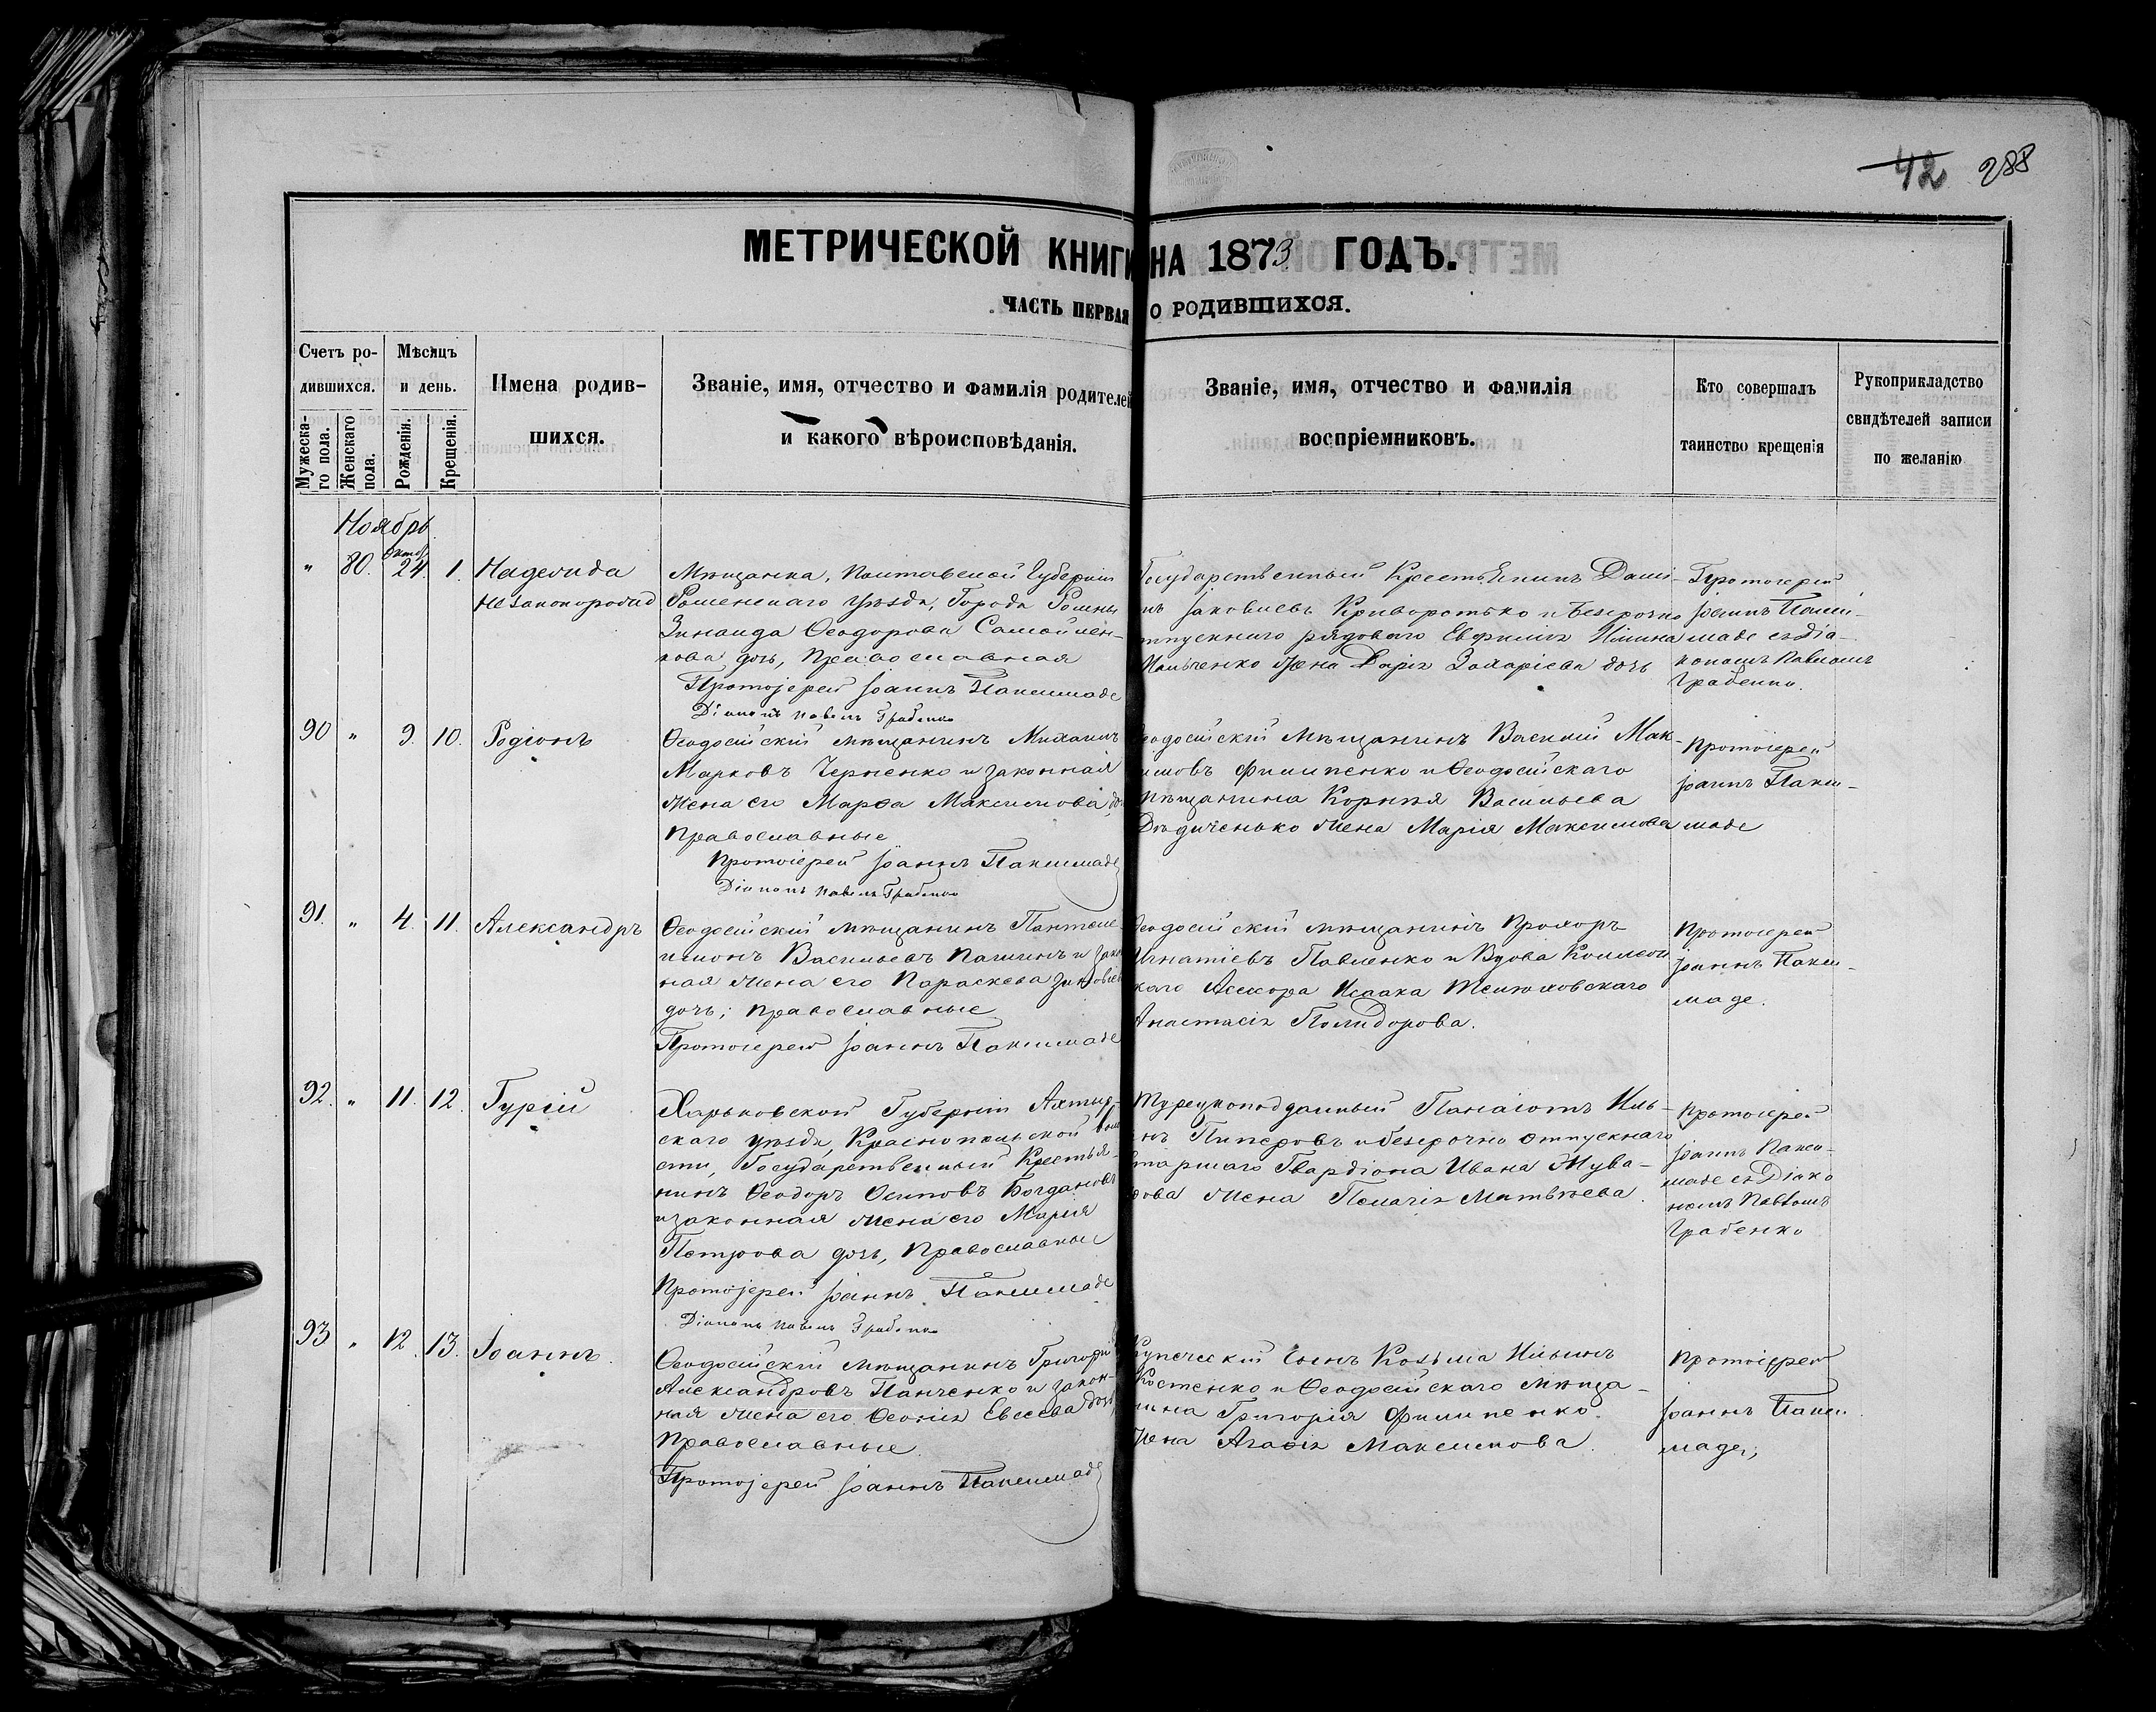 42 288
МЕТРИЧЕСКОЙ КНИГИ НА 1873 ГОДЪ.
ЧАСТЬ ПЕРВАЯ О РОДИВШИХСЯ.
Счетъ родившихся.
Мужескаго пола.
Женскаго пола.
Мѣсяцъ и день.
Рожденія.
Крещенія.
Имена родившихся.
Званіе, имя, отчество и фамилія родителей
и какого вѣроисповѣданія.
Званіе, имя, отчество и фамилія
воспріемниковъ.
Кто совершалъ
таинство крещенія
Рукоприкладство
свидѣтелей записи
по желанію
Ноябрь
" 80. Октоб. 24. 1. Надежида
незаконорожд
Мѣщанка, Полтавской Губерніи
Роменскаго Уѣзда, Города Ромны
Зинаида Ѳеодорова Самойлен-
кова дочь, Православная
Протоіерей Іоаннъ Паксимаде
Діаконъ Павелъ Грабенко
Государственный Крестьянинъ Дани-
лъ Іаковлевъ Криворотько и безсрочно
отпускнаго рядоваго Евфимія
Жена Дарія Захаріева дочь
Протоіерей
Іоаннъ Пакси-
маде съ Діа-
кономъ Павломъ
Грабенко.
90 " 9. 10. Родіонъ
Ѳеодосійскій мѣщанинъ Михаилъ
Марковъ Черненко и законная
жена его Марѳа Максимова, до
Православные
Протоіерей Іоаннъ Паксимаде
Діаконъ Павелъ Грабенко
Ѳеодосійскій Мѣщанинъ Василій Мак-
симовъ Филипенко и Ѳеодосійскаго
мѣщанина Корнѣя Васильева
Дѣдиченько жена Марія Максимова
Протоіерей
Іоаннъ Пакси-
маде
91. " 4. 11. Александръ
Ѳеодосійскій мѣщанинъ Пантеле-
имонъ Васильевъ Пашинъ и закон
ная жена его Параскева Зиновіев
дочь; Православные
Протоіерей Іоаннъ Паксимаде
Ѳеодосійскій мѣщанинъ Прохоръ
Игнатіевъ Павленко и Вдова Коллеж
скаго Асесора Исаака
Анастасія Полидорова.
Протоіерей
Іоаннъ Пакси-
маде.
92. " 11. 12. Гурій
Харьковской Губерніи Ахтыр-
скаго уѣзда, Краснопольской вол
сти, Государственный Крестья-
нинъ Ѳеодоръ Осиповъ Богданов
и законная жена его Марія
Петрова дочь, Православные
Протоіерей Іоаннъ Паксимаде
Діаконъ Павелъ Грабенко
Турецкоподданный Панаіотъ Иль-
инъ Пиперовъ и безсрочно отпускнаго
старшаго Гвардіона Ивана Жува-
дова жена Пелагія Матвѣева.
Протоіерей
Іоаннъ Пакси-
маде съ Діако
номъ Павломъ
Грабенко
93 " 12. 13. Іоаннъ.
Ѳеодосійскій мѣщанинъ Григорій
Александровъ Панченко и закон-
ная жена его Ѳеонія Евсеева дочь
Православные.
Протоіерей Іоаннъ Паксимаде
Купеческій сынъ Козьма Ильинъ
Костенко и Ѳеодосійскаго мѣща-
нина Григорія Филипенко.
Жена Агафія Максимова.
Протоіерей
Іоаннъ Пакси-
маде;